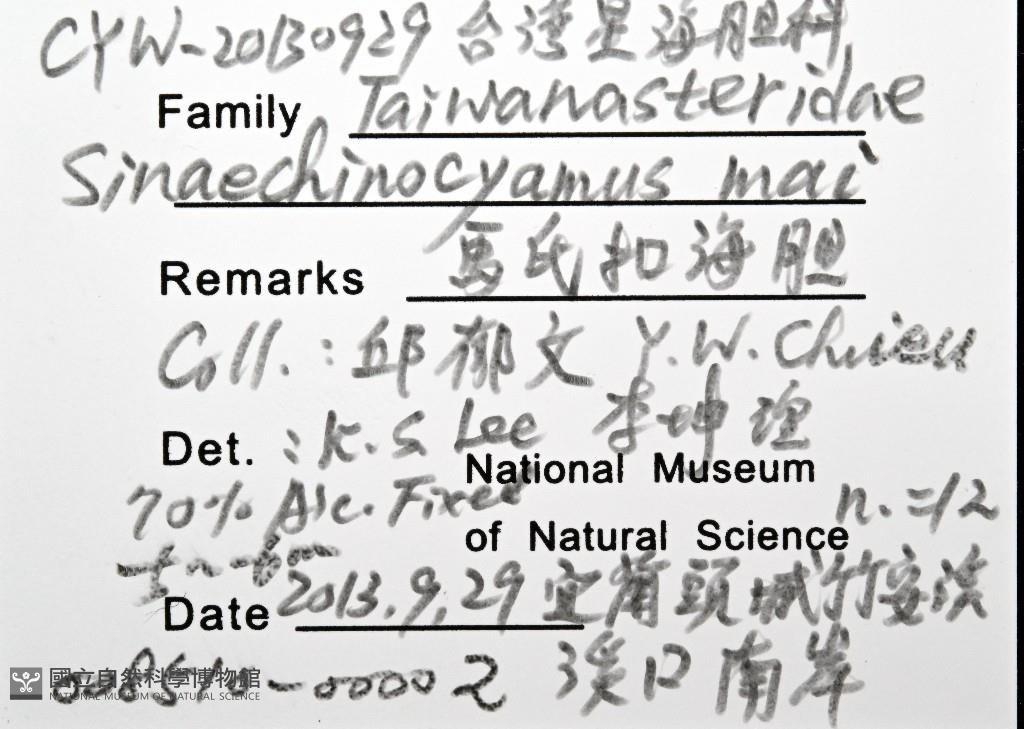 CYW-20130929 台灣星海胆科
Family Taiwanasteridae
Sinaechinocyamus mai
馬氏扣海胆
Remarks
Coll.: 邱郁文 Y.W. Chiu
Det. : K.S Lee 李坤瑄
National Museum
70% Alc. Fixed
of Natural Science n.=12
Date 2013.9.29 宜 頭城竹安溪
-00002 溪口南岸
國立自然科學博物館
NATIONAL MUSEUM OF NATURAL SCIENCE